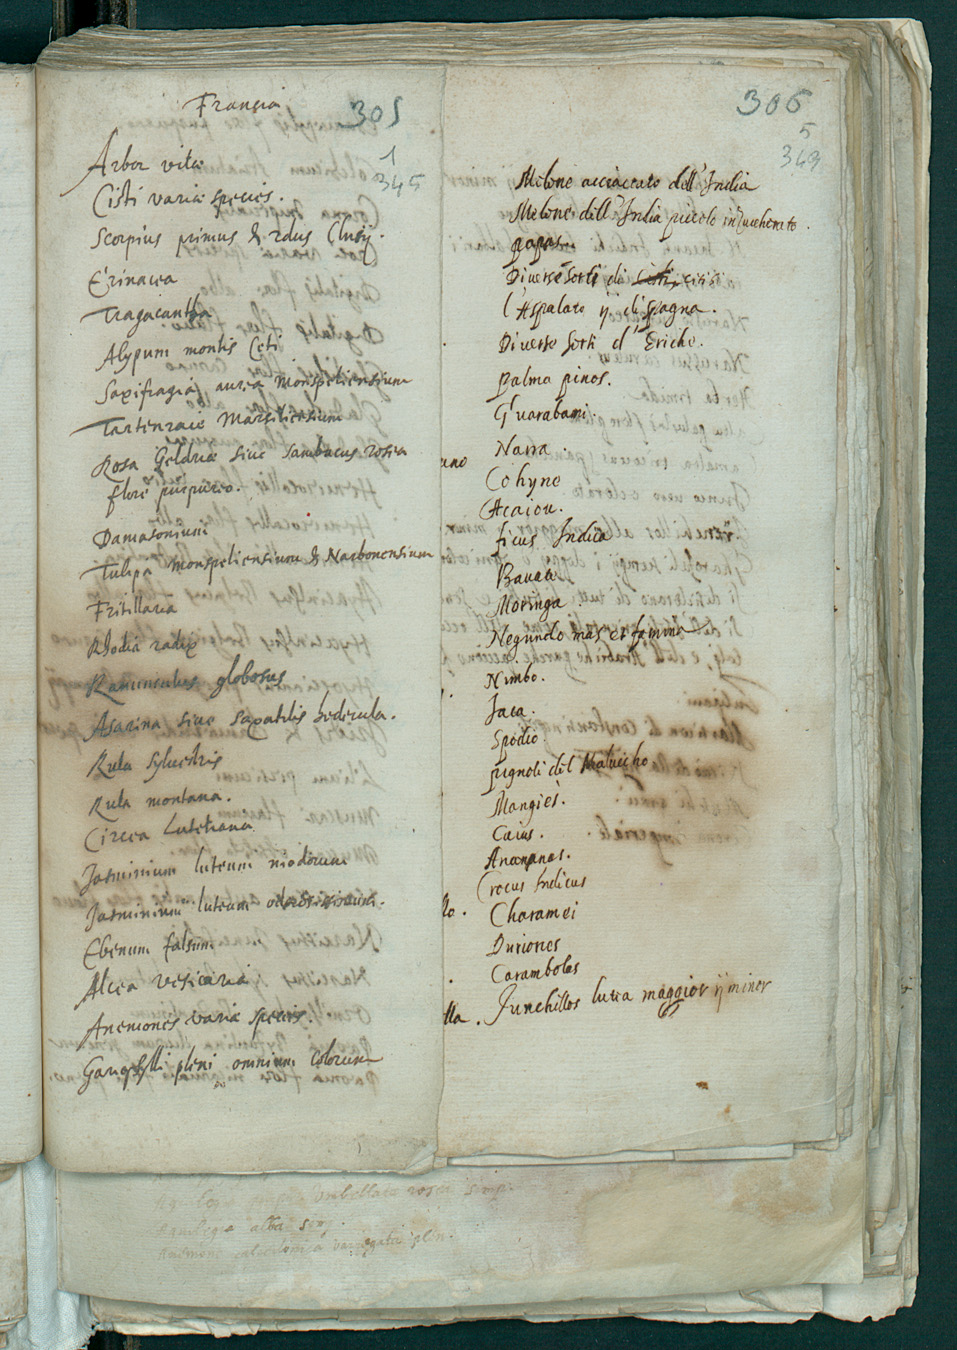 Francia
305
1
345
Arbor vitæ
Cisti variæ species.
Scorpius primus & 2dus Clusij.
Erinacea
Tragacantha
Alypum montis Ceti
Saxifragia aurea Monspeliensium
Tartonraie Marsiliensium
Rosa Geldriæ siue Sambucus rosea
flore purpureo.
Damasonium
Tulipa Monspeliensium & Narbonensium
Fritillaria
Rhodia radix
Ranunculus globosus
Asarina siue saxatilis hederula.
Ruta sylvestris
Ruta montana.
Circea Lutetiana
Jasminium luteum inodorum
Jasminium luteum odoratissimum.
Ebenum falsum
Alcea vesicaria
Anemones variæ species.
Garyophylli pleni omnium colorum
306
5
343
Melone acciaccato dell'India
Melone dell'India piccolo inzuccherato.
papas
Diverse sorti di cisti
l'Aspalato ij di spagna.
Diverse sorti d'Eriche.
Palma pinos.
Guarabami.
Narra.
Cohyne
Acaiou.
ficus Indica
Moringa.
Negundo mas et famina
Nimbo.
Jaca.
Spodio
pignoli del Maluccho
Mangies.
Caius.
Ananas.
Crocus Indicus
Charamei
Duriones
Carambolas
Junchillos lutea maggior ij minor
umbellata rosea
alba